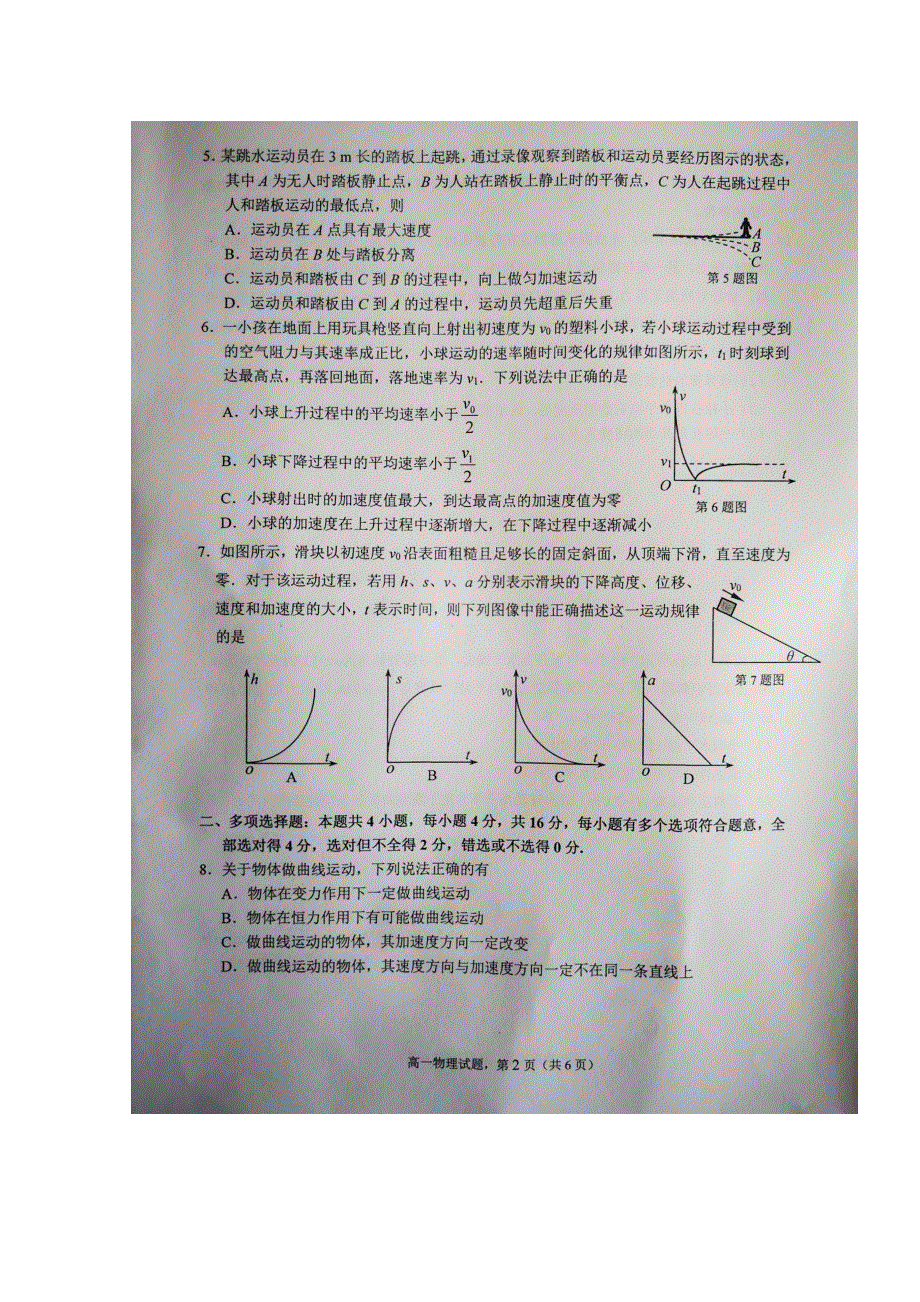 5．某跳水运动员在 3 m 长的踏板上起跳，通过录像观察到踏板和运动员要经历图示的状态，
其中 A 为无人时踏板静止点，B 为人站在踏板上静止时的平衡点，C 为人在起跳过程中
人和踏板运动的最低点，则
A．运动员在 A 点具有最大速度
B．运动员在 B 处与踏板分离
C．运动员和踏板由 C 到 B 的过程中，向上做匀加速运动
D．运动员和踏板由 C 到 A 的过程中，运动员先超重后失重
A
B
C
第 5 题图
6．一小孩在地面上用玩具枪竖直向上射出初速度为 v₀ 的塑料小球，若小球运动过程中受到
的空气阻力与其速率成正比，小球运动的速率随时间变化的规律如图所示，t₁ 时刻球到
达最高点，再落回地面，落地速率为 v₁．下列说法中正确的是
A．小球上升过程中的平均速率小于 v₀/2
B．小球下降过程中的平均速率小于 v₁/2
C．小球射出时的加速度值最大，到达最高点的加速度值为零
D．小球的加速度在上升过程中逐渐增大，在下降过程中逐渐减小
v
v₀
v₁
O t₁ t
第 6 题图
7．如图所示，滑块以初速度 v₀ 沿表面粗糙且足够长的固定斜面，从顶端下滑，直至速度为
零．对于该运动过程，若用 h、s、v、a 分别表示滑块的下降高度、位移、
速度和加速度的大小，t 表示时间，则下列图像中能正确描述这一运动规律
的是
v₀
θ
第 7 题图
h s v a
v₀
o t o t o t o t
A B C D
二、多项选择题：本题共 4 小题，每小题 4 分，共 16 分，每小题有多个选项符合题意，全
部选对得 4 分，选对但不全得 2 分，错选或不选得 0 分．
8．关于物体做曲线运动，下列说法正确的有
A．物体在变力作用下一定做曲线运动
B．物体在恒力作用下有可能做曲线运动
C．做曲线运动的物体，其加速度方向一定改变
D．做曲线运动的物体，其速度方向与加速度方向一定不在同一条直线上
高一物理试题，第 2 页（共 6 页）